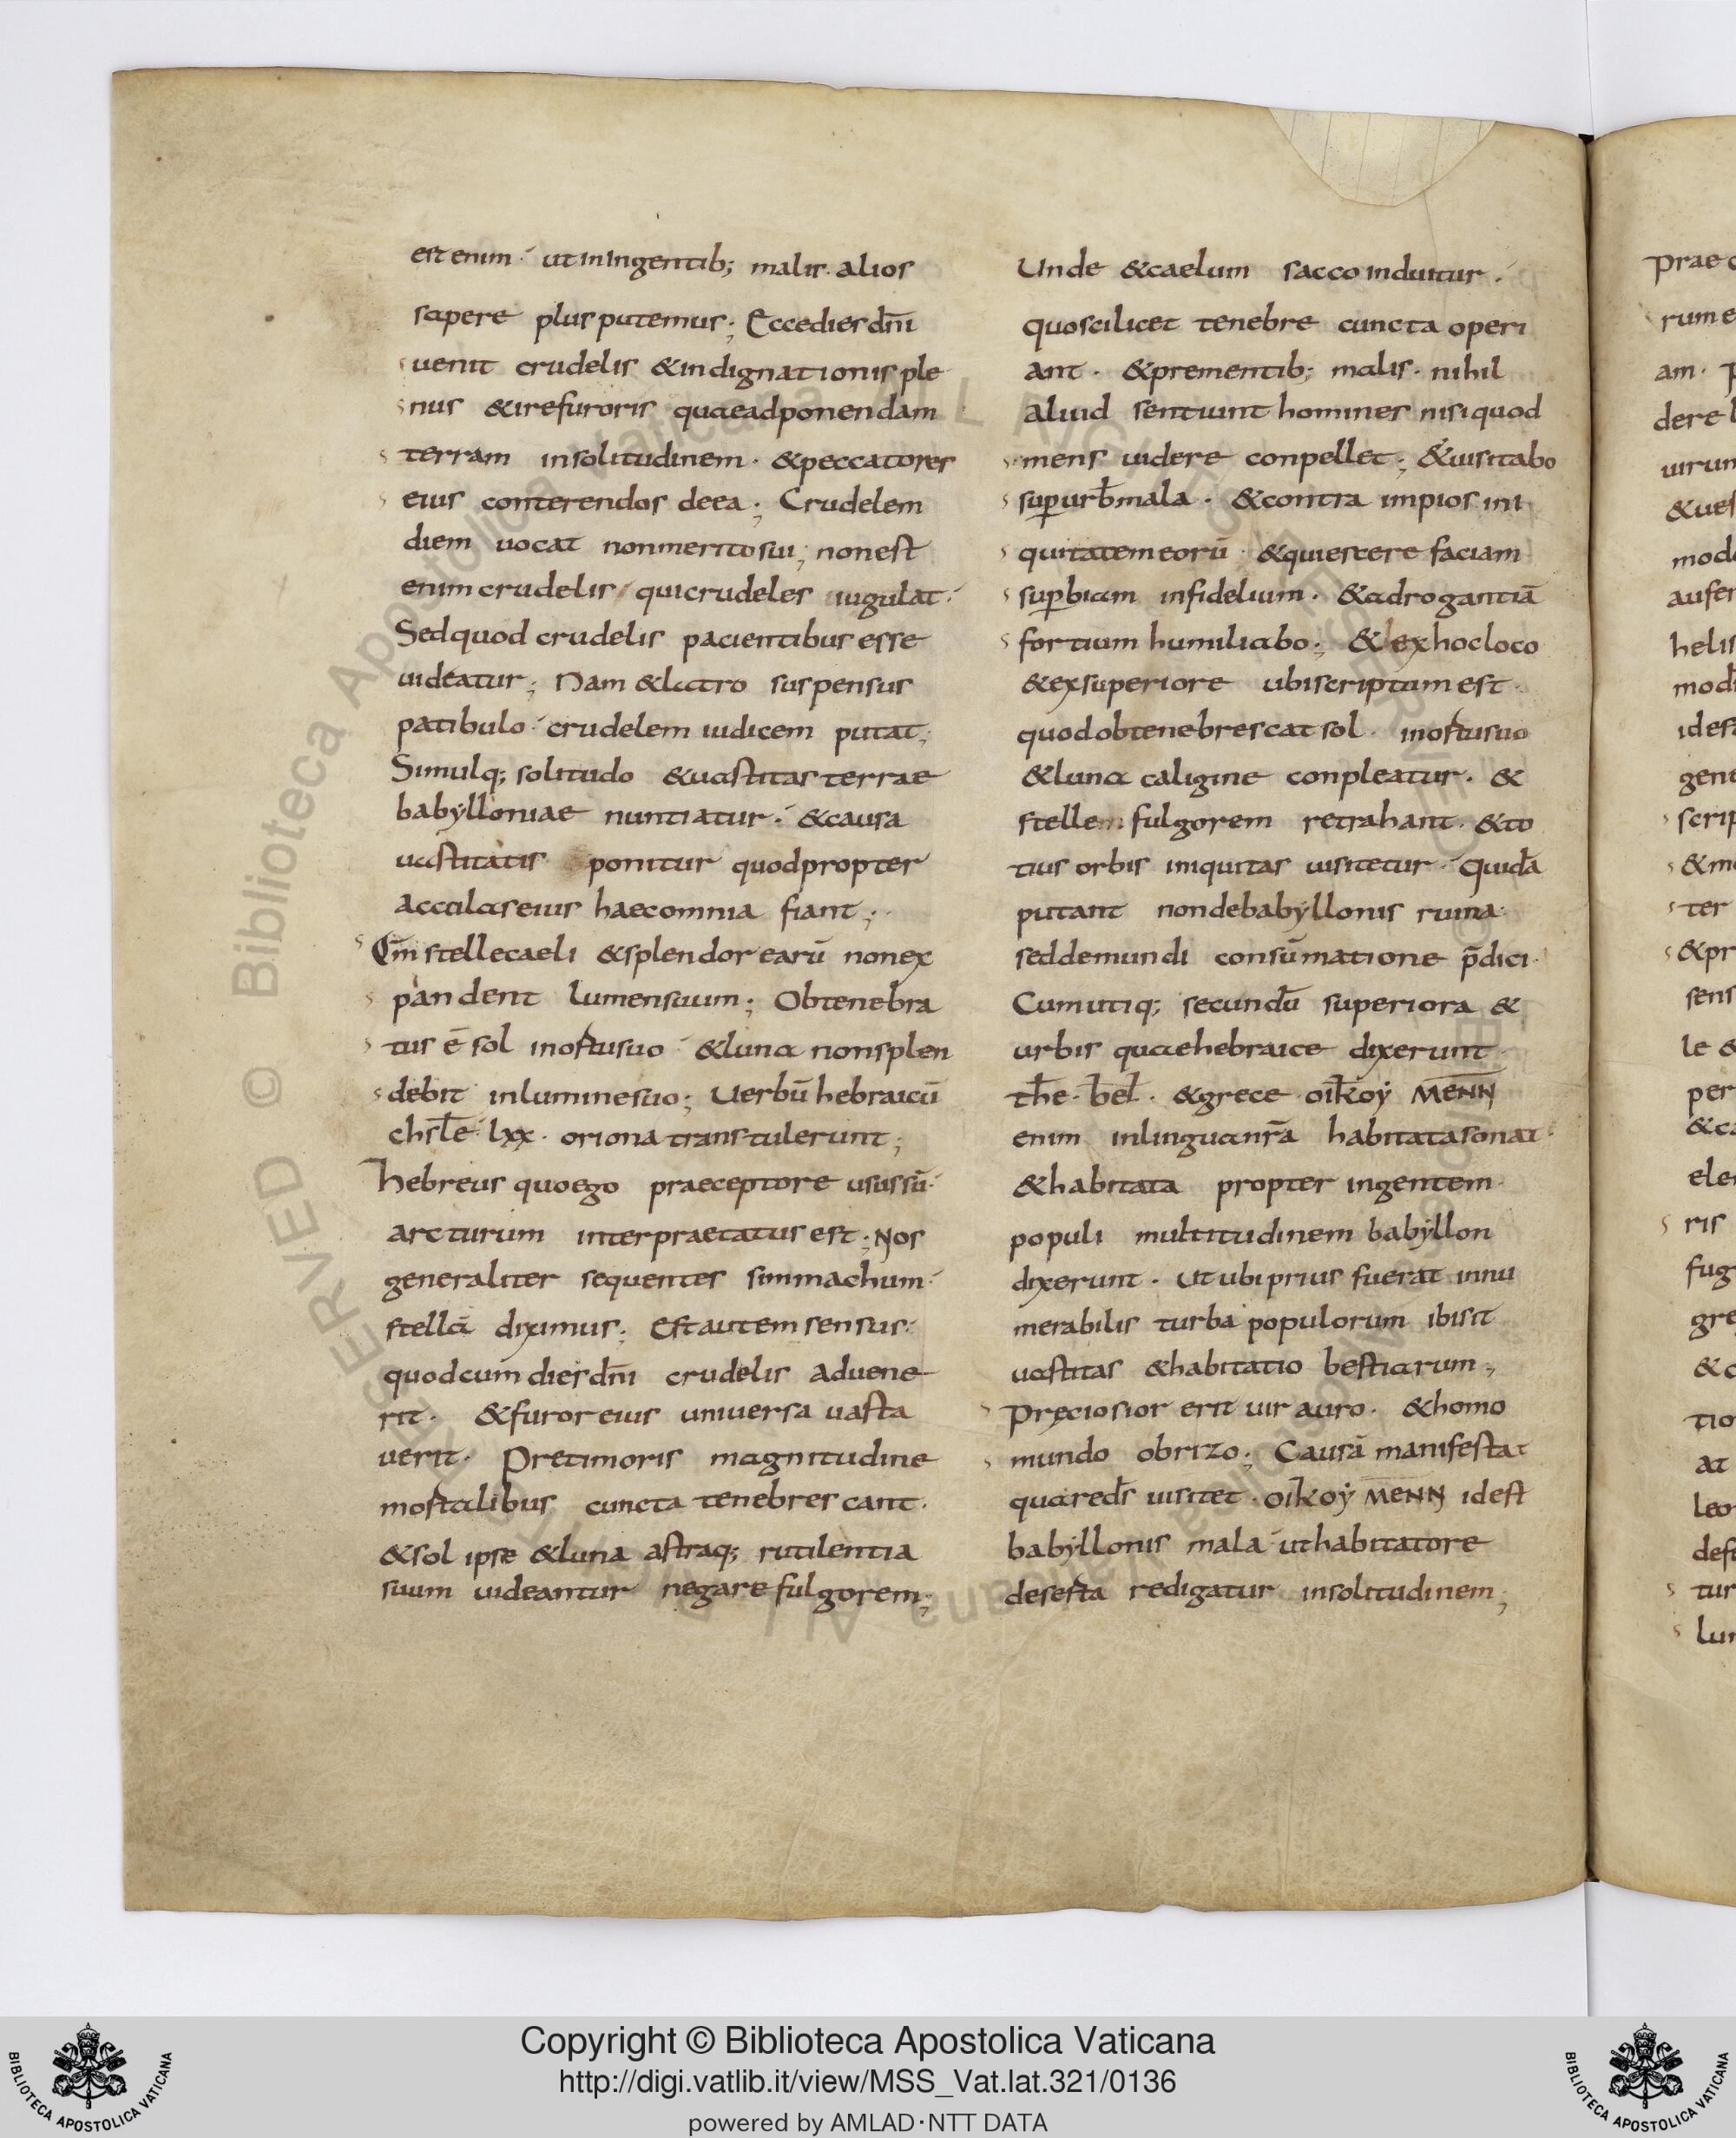 est enim · ut in ingentib; malis · alios
sapere plus putemus; Ecce dies dn̄i
uenit crudelis & indignationis ple
nus & ire furoris quae ad ponendam
terram in solitudinem · & peccatores
eius conterendos de ea; Crudelem
diem uocat non merito sui; non est
enim crudelis qui crudeles iugulat ·
Sed quod crudelis pacientibus esse
uideatur; Nam & latro suspensus
patibulo · crudelem iudicem putat;
Simulq; solitudo & uastitas terrae
babylloniae nuntiatur · & causa
uastitatis ponitur quod propter
accalas eius haec omnia fiant;
Qm̄ stelle caeli & splendor earū non ex
pandent lumen suum; Obtenebra
tus ē sol in ortu suo · & luna non splen
debit in lumine suo; Uerbū hebraicū
chrle · lxx · oriona transtulerunt;
hebreus quo ego praeceptore usus sū ·
arcturum interpraetatus est; Nos
generaliter sequentes simmachum ·
stellā diximus; Est autem sensus ·
quod cum dies dn̄i crudelis aduene
rit · & furor eius uniuersa uasta
uerit · Pre timoris magnitudine
mortalibus cuncta tenebrescant ·
& sol ipse & luna astraq; rutilentia
suum uideantur negare fulgorem;
Unde & caelum sacco induitur ·
quo scilicet tenebre cuncta operi
ant · & prementib; malis · nihil
aliud sentiunt homines nisi quod
mens uidere conpellet; & uisitabo
sup̄ urb̄ mala · & contra impios ini
quitatem eorū · & quiescere faciam
sup̄biam infidelium · & adrogantiā
fortium humiliabo; & ex hoc loco
& ex superiore ubi scriptum est ·
quod obtenebrescat sol · in ortu suo
& luna caligine conpleatur · &
stelle fulgorem retrahant · & to
tius orbis iniquitas uisitetur · Quidā
putant non de babyllonis ruina ·
sed de mundi consūmatione p̄dici ·
Cum utiq; secundū superiora &
urbis quae hebraice dixerunt ·
the · bel · & grece · oikoy MENN
enim in lingua nr̄a habitata sonat ·
& habitata propter ingentem ·
populi multitudinem babyllon
dixerunt · Ut ubi prius fuerat innu
merabilis turba populorum ibi sit
uastitas & habitatio bestiarum;
Preciosior erit uir auro · & homo
mundo obrizo; Causā manifestat
quare ds̄ uisitet · oikoy MENN id est
babyllonis mala · ut habitatore
deserta redigatur in solitudinem;
Copyright © Biblioteca Apostolica Vaticana
http://digi.vatlib.it/view/MSS_Vat.lat.321/0136
powered by AMLAD·NTT DATA
BIBLIOTECA APOSTOLICA VATICANA
BIBLIOTECA APOSTOLICA VATICANA